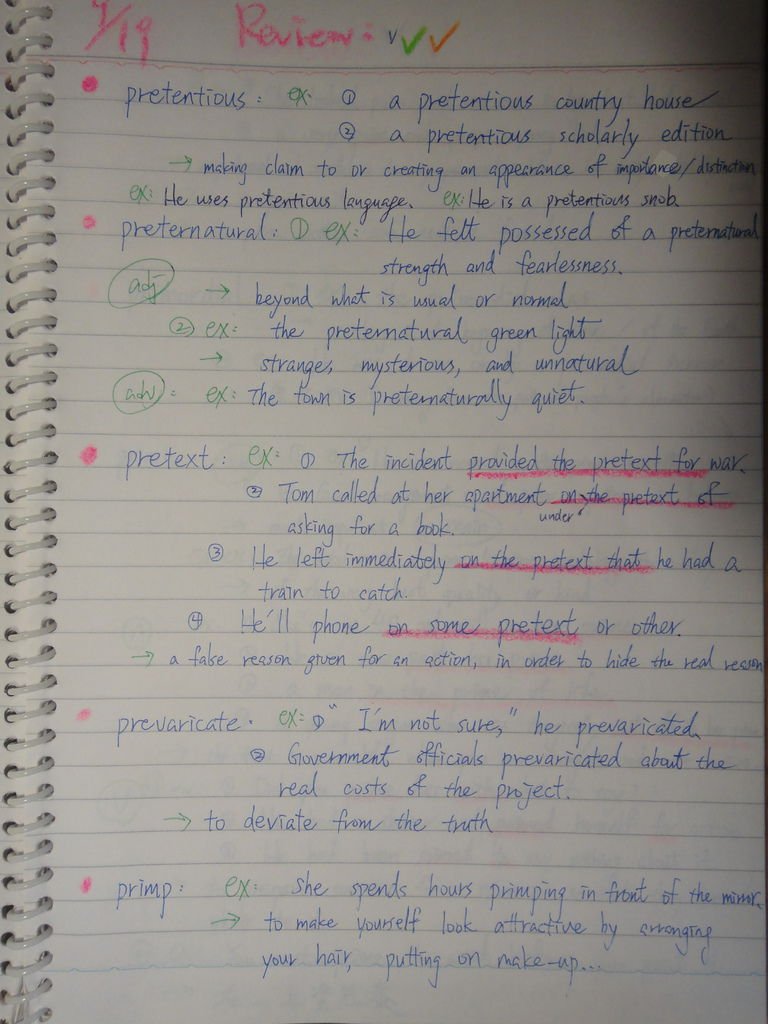 7/19 Review: ✓ ✓ ✓
pretentious: ex: ① a pretentious country house
② a pretentious scholarly edition
→ making claim to or creating an appearance of importance/distinction
ex: He uses pretentious language. ex: He is a pretentious snob
preternatural: ① ex: He felt possessed of a preternatural
strength and fearlessness.
adj → beyond what is usual or normal
② ex: the preternatural green light
→ strange, mysterious, and unnatural
adv: ex: The town is preternaturally quiet.
pretext: ex: ① The incident provided the pretext for war.
② Tom called at her apartment on the pretext of
under
asking for a book.
③ He left immediately on the pretext that he had a
train to catch.
④ He'll phone on some pretext or other.
→ a false reason given for an action, in order to hide the real reason
prevaricate. ex: ① "I'm not sure," he prevaricated.
② Government officials prevaricated about the
real costs of the project.
→ to deviate from the truth
primp: ex: She spends hours primping in front of the mirror.
→ to make yourself look attractive by arranging
your hair, putting on make-up...